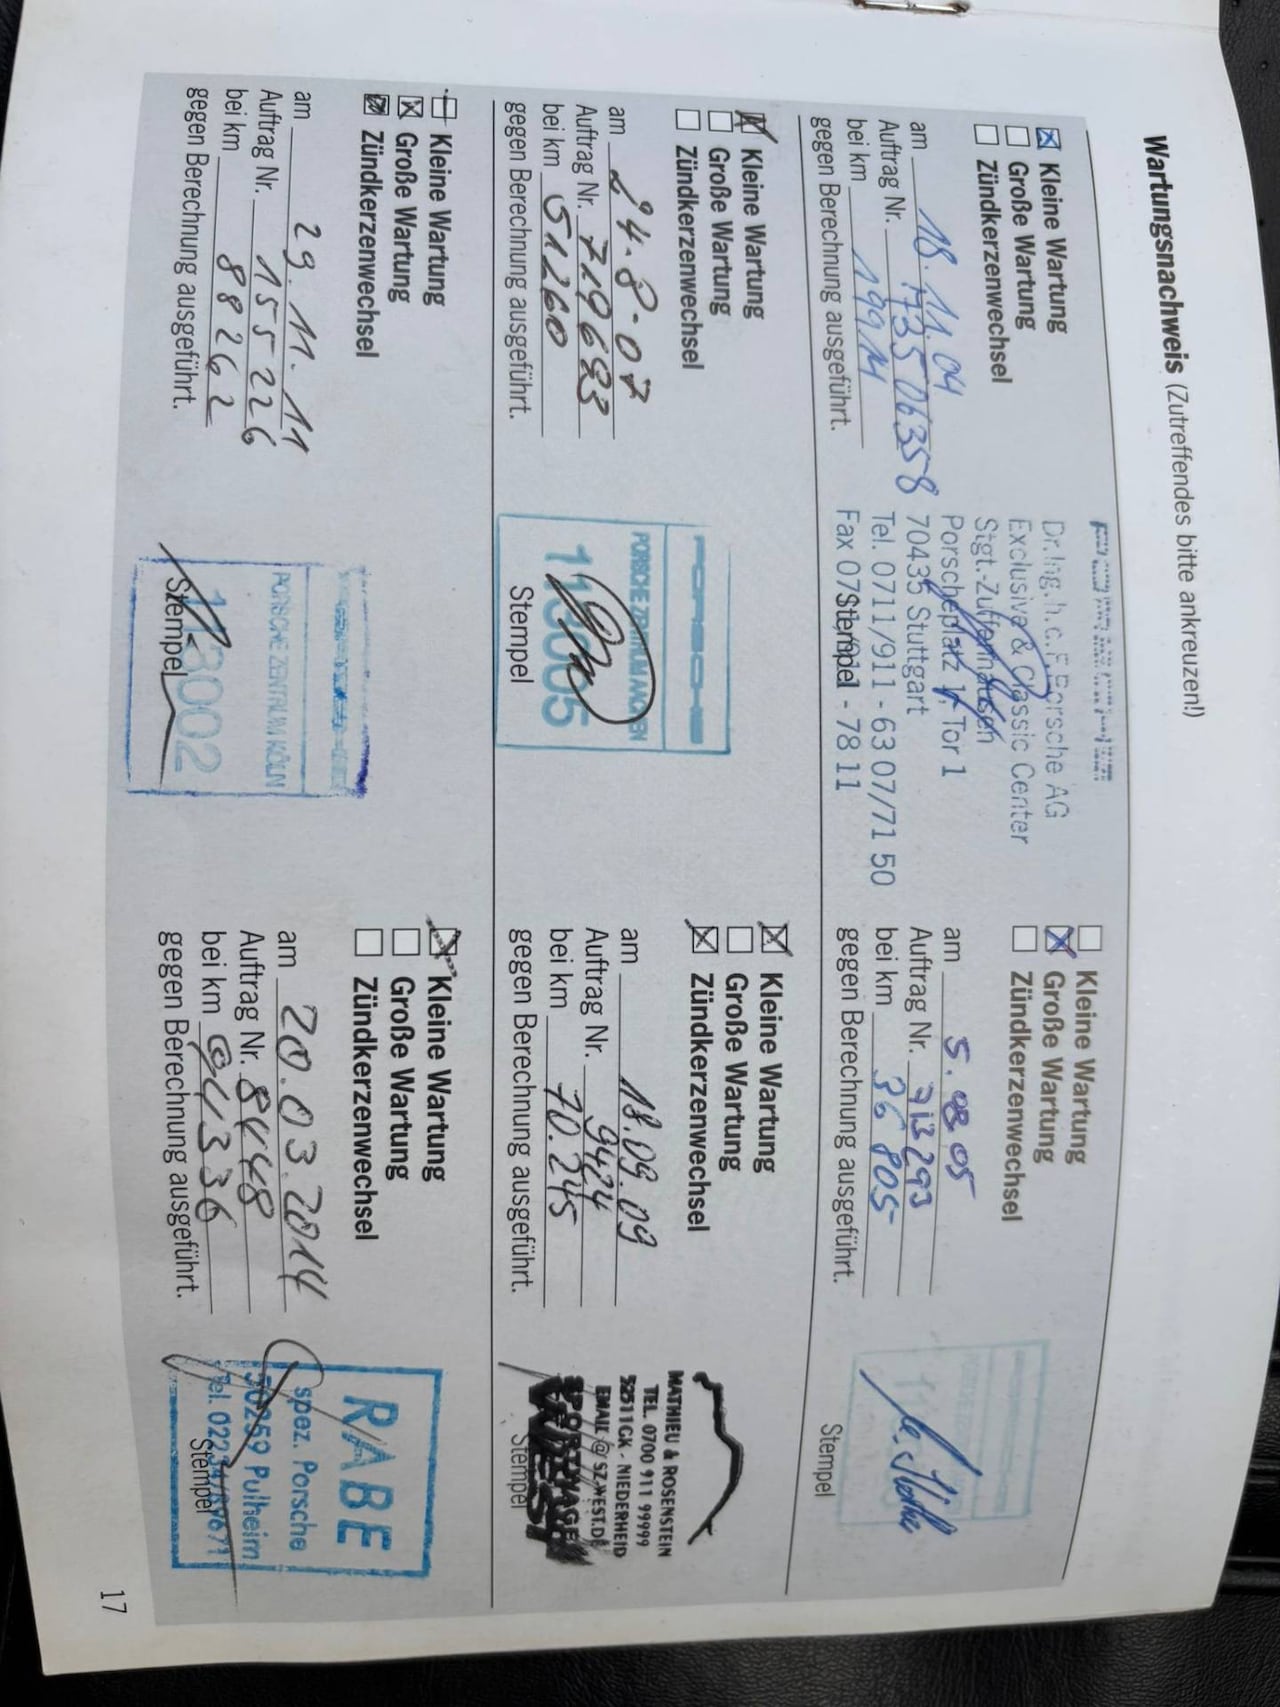 Wartungsnachweis (Zutreffendes bitte ankreuzen!)
Kleine Wartung
Große Wartung
Zündkerzenwechsel
am 18.11.04
Auftrag Nr. 173506358
bei km 19914
gegen Berechnung ausgeführt.
Dr.Ing.h.c.F.Porsche AG
Exclusive & Classic Center
Stgt.-Zuffenhausen
Porscheplatz 1, Tor 1
70435 Stuttgart
Tel. 0711/911 - 63 07/71 50
Fax 07 - 78 11
Stempel
Kleine Wartung
Große Wartung
Zündkerzenwechsel
am 5.08.05
Auftrag Nr. 713293
bei km 36 805
gegen Berechnung ausgeführt.
Stempel
Kleine Wartung
Große Wartung
Zündkerzenwechsel
am 24.8.07
Auftrag Nr. 719693
bei km 51260
gegen Berechnung ausgeführt.
PORSCHE
PORSCHE ZENTRUM AACHEN
Stempel
Kleine Wartung
Große Wartung
Zündkerzenwechsel
am 18.09.09
Auftrag Nr. 9424
bei km 70.245
gegen Berechnung ausgeführt.
MATHIEU & ROSENSTEIN
TEL. 0700 911 99999
52511 GK - NIEDERHEID
EMAIL @ SZ-WEST.DE
Stempel
Kleine Wartung
Große Wartung
Zündkerzenwechsel
am 29.11.11
Auftrag Nr. 155226
bei km 88262
gegen Berechnung ausgeführt.
PORSCHE ZENTRUM KÖLN
113002
Stempel
Kleine Wartung
Große Wartung
Zündkerzenwechsel
am 20.03.2014
Auftrag Nr. 8448
bei km 94336
gegen Berechnung ausgeführt.
RABE
spez. Porsche
50259 Pulheim
Stempel
17